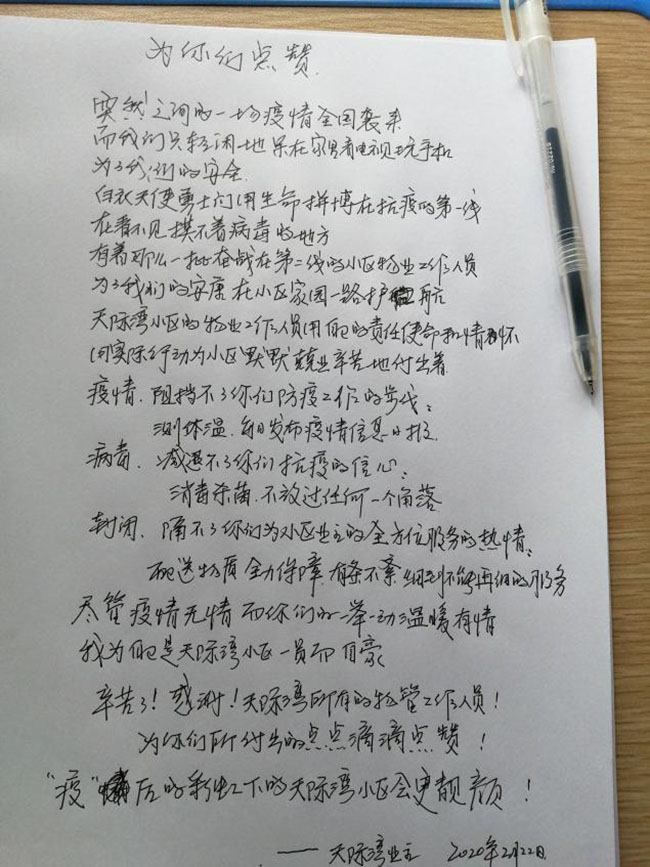 为你们点赞
突然之间的一场疫情全国袭来
而我们只轻闲地呆在家里看电视玩手机
为了我们的安全
白衣天使勇士们用生命拼博在抗疫的第一线
在看不见摸不着病毒的地方
有着那么一批奋战在第二线的小区物业工作人员
为了我们的安康在小区家园一路护航
天际湾小区的物业工作人员用自己的责任使命和情怀
以实际行动为小区默默兢业辛苦地付出着
疫情.阻挡不了你们防疫工作的步伐:
测体温.每日发布疫情信息日报
病毒.减退不了你们抗疫的信心:
消毒杀菌.不放过任何一个角落
封闭.隔不了你们为小区业主的全方位服务的热情:
配送物质全力保障.有条不紊细到不能再细的服务
尽管疫情无情而你们的一举一动温暖有情
我为自己是天际湾小区一员而自豪
辛苦了!感谢!天际湾所有的物管工作人员!
为你们所付出的点点滴滴点赞!
"疫"后的彩虹下的天际湾小区会更靓颜!
——天际湾业主 2020年2月22日